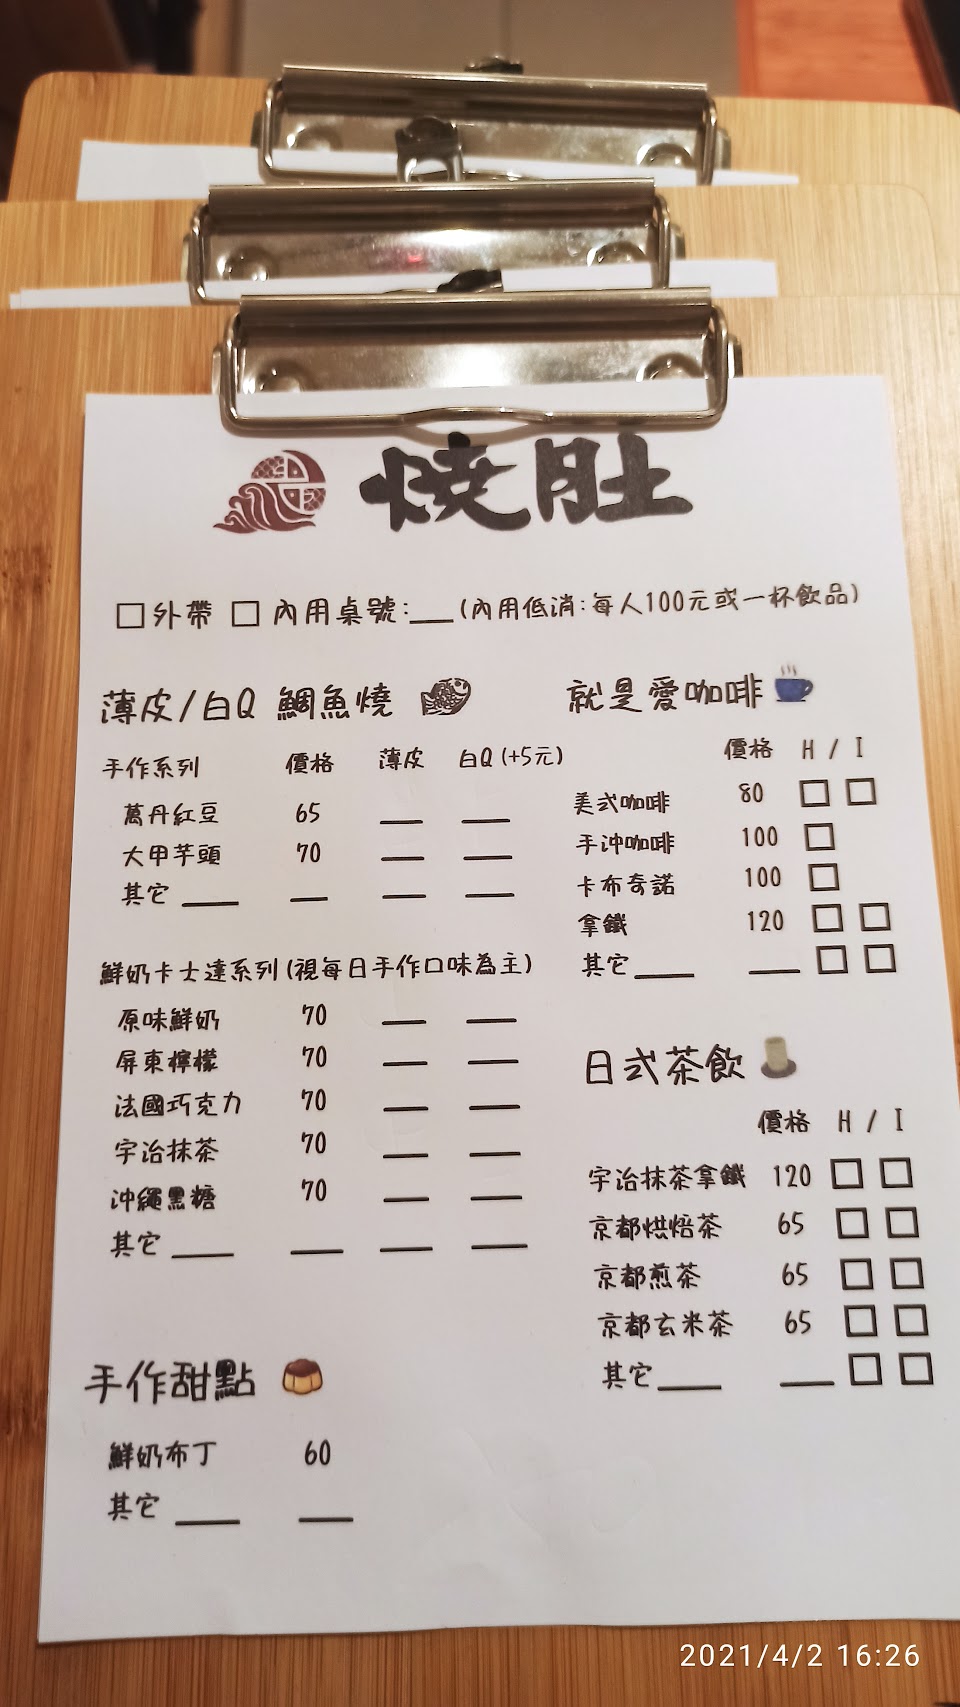 燒肚
□外帶 □ 內用桌號:__(內用低消:每人100元或一杯飲品)
薄皮/白Q 鯛魚燒
手作系列 價格 薄皮 白Q (+5元)
萬丹紅豆 65 __ __
大甲芋頭 70 __ __
其它 __ __ __ __
鮮奶卡士達系列(視每日手作口味為主)
原味鮮奶 70 __ __
屏東檸檬 70 __ __
法國巧克力 70 __ __
宇治抹茶 70 __ __
沖繩黑糖 70 __ __
其它 __ __ __ __
手作甜點
鮮奶布丁 60
其它 __ __
就是愛咖啡
價格 H / I
美式咖啡 80 □ □
手沖咖啡 100 □
卡布奇諾 100 □
拿鐵 120 □ □
其它__ __ □ □
日式茶飲
價格 H / I
宇治抹茶拿鐵 120 □ □
京都烘焙茶 65 □ □
京都煎茶 65 □ □
京都玄米茶 65 □ □
其它__ __ □ □
2021/4/2 16:26